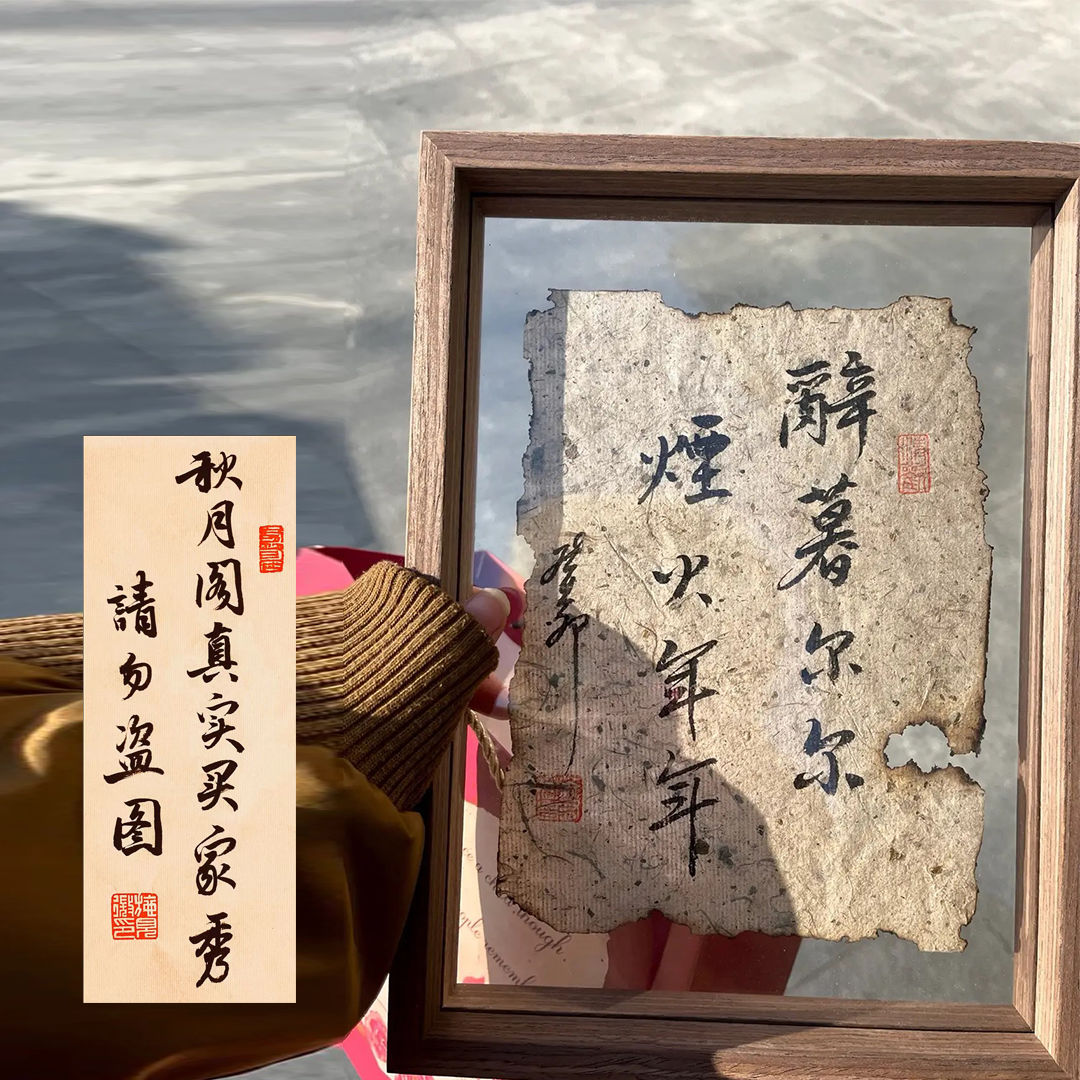 辭暮尔尔
煙火年年
癸卯
秋月阁真实买家秀
請勿盗图
through.